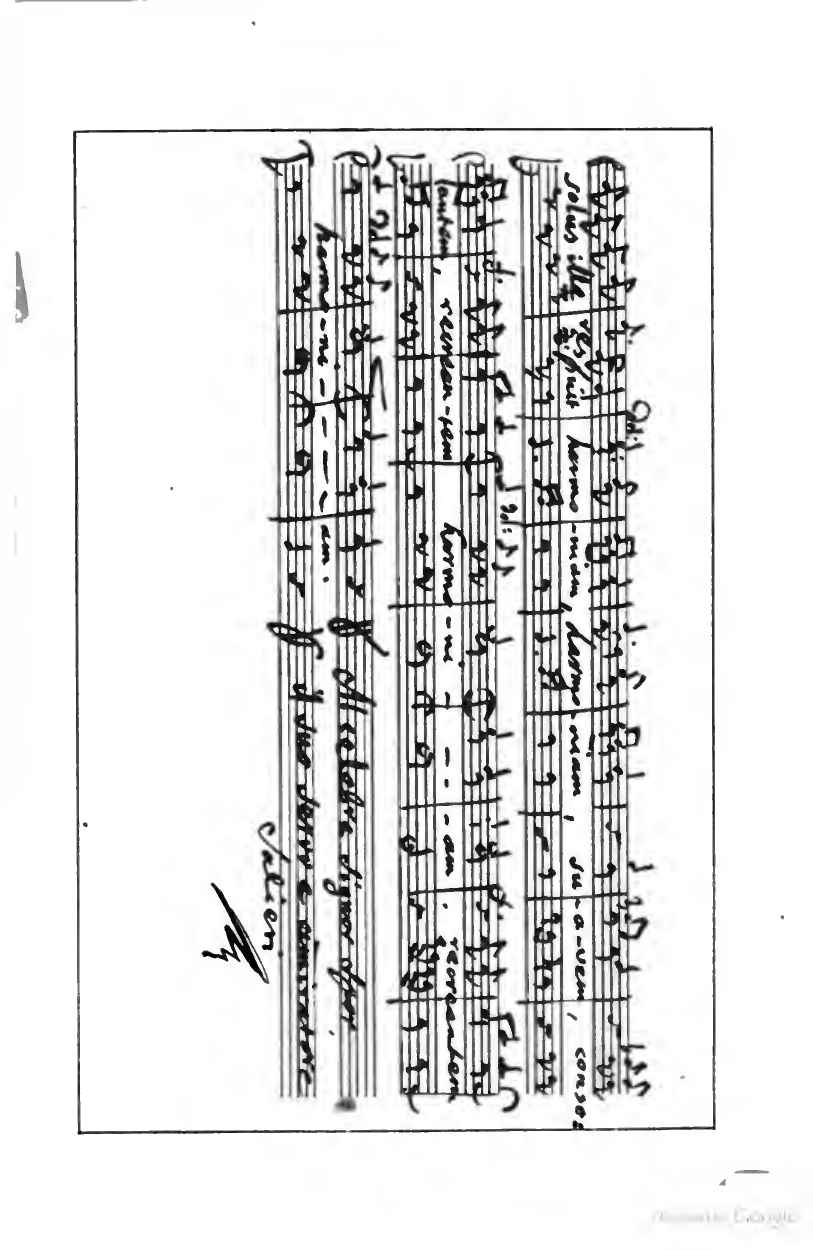 solus ille res fuit harmo-niam, harmo-niam, su-a-vem, conso:
nantem, recrean-tem harmo-ni - - - - am. recreantem
harmo-ni - - - - am.
Al celebre Signor Spor
il suo servo e amiratore
Salieri